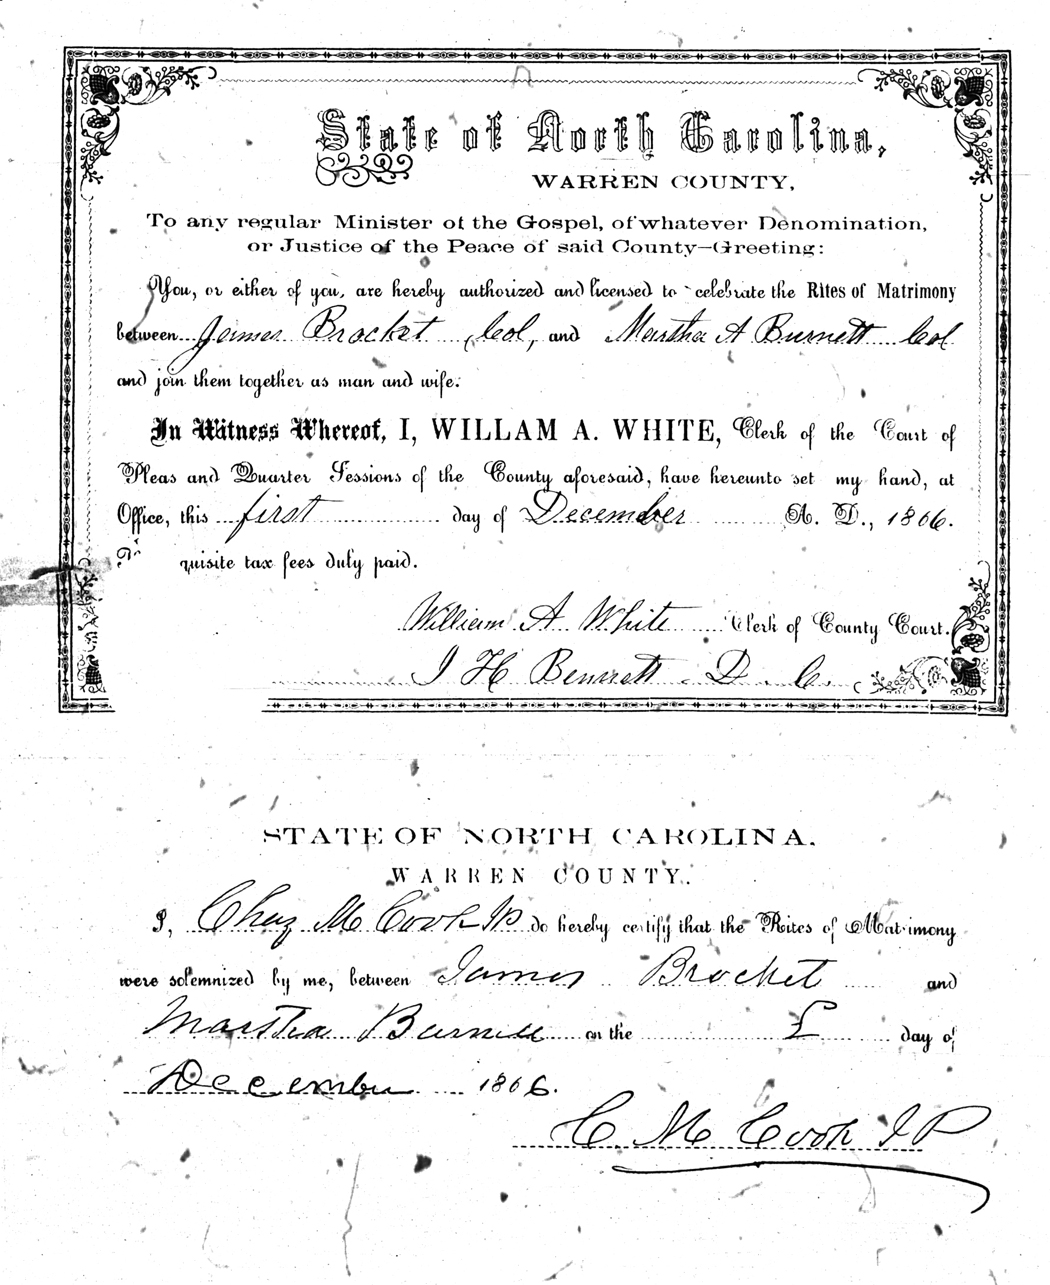 State of North Carolina,
WARREN COUNTY,
To any regular Minister of the Gospel, of whatever Denomination,
or Justice of the Peace of said County—Greeting:
You, or either of you, are hereby authorized and licensed to celebrate the Rites of Matrimony
between James Brocket, Col, and Martha A Burnett Col
and join them together as man and wife.
In Witness Whereof, I, WILLAM A. WHITE, Clerk of the Court of
Pleas and Quarter Sessions of the County aforesaid, have hereunto set my hand, at
Office, this first day of December A. D., 1866.
quisite tax fees duly paid.
William A. White Clerk of County Court.
J H Bennett D. C.
STATE OF NORTH CAROLINA.
WARREN COUNTY.
I, Chas M Cook JP do hereby certify that the Rites of Matrimony
were solemnized by me, between James Brocket and
Martha Burnett on the day of
December 1866.
C. M Cook J P